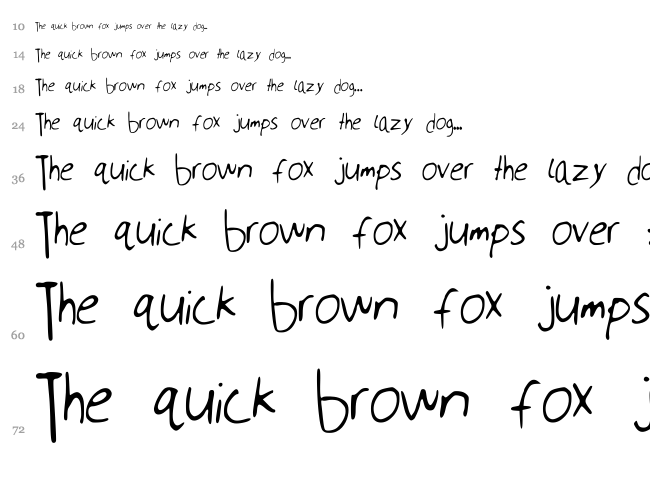 10 The quick brown fox jumps over the lazy dog...
14 The quick brown fox jumps over the lazy dog...
18 The quick brown fox jumps over the lazy dog...
24 The quick brown fox jumps over the lazy dog...
36 The quick brown fox jumps over the lazy do
48 The quick brown fox jumps over
60 The quick brown fox jumps
72 The quick brown fox j